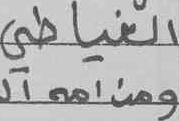 الغياطي
ومن امه آل